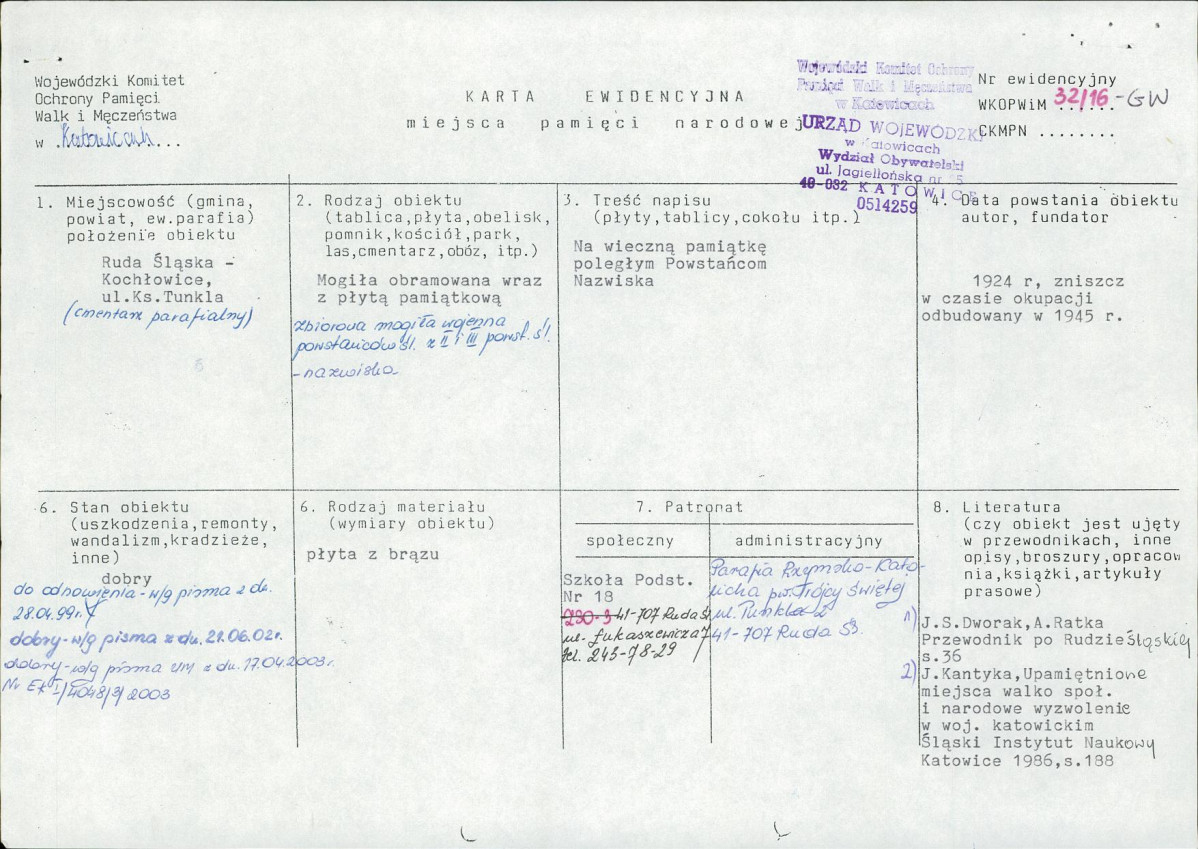 Wojewódzki Komitet
Ochrony Pamięci
Walk i Męczeństwa
w .Katowicach...
KARTA EWIDENCYJNA
miejsca pamięci narodowej
Wojewódzki Komitet Ochrony
Pamięci Walk i Męczeństwa
w Katowicach
URZĄD WOJEWÓDZKI
w Katowicach
Wydział Obywatelski
ul. Jagiellońska nr 25
40-032 KATOWICE
0514259
Nr ewidencyjny
WKOPWiM 32/16-GW
CKMPN ........
1. Miejscowość (gmina,
powiat, ew.parafia)
położenie obiektu
Ruda Śląska -
Kochłowice,
ul.Ks.Tunkla
(cmentarz parafialny)
6
2. Rodzaj obiektu
(tablica,płyta,obelisk,
pomnik,kościół,park,
las,cmentarz,obóz, itp.)
Mogiła obramowana wraz
z płytą pamiątkową
zbiorowa mogiła wojenna
powstańców śl. z II i III powst. śl.
- nazwiska
3. Treść napisu
(płyty,tablicy,cokołu itp.)
Na wieczną pamiątkę
poległym Powstańcom
Nazwiska
4. Data powstania obiektu
autor, fundator
1924 r, zniszcz
w czasie okupacji
odbudowany w 1945 r.
6. Stan obiektu
(uszkodzenia,remonty,
wandalizm,kradzieże,
inne)
dobry
do odnowienia - w/g pisma z dn.
28.04.99r.
dobry - w/g pisma z dn. 21.06.02r.
dobry - w/g pisma UM z dn. 17.04.2003r.
Nr EK I/4048/3/2003
6. Rodzaj materiału
(wymiary obiektu)
płyta z brązu
7. Patronat
społeczny
Szkoła Podst.
Nr 18
230-3 41-707 Ruda Śl
ul. Łukasiewicza 7
tel. 243-78-29
administracyjny
Parafia Rzymsko-Kato-
licka pw. Trójcy Świętej
ul. Tunkla 2
41-707 Ruda Śl.
8. Literatura
(czy obiekt jest ujęty
w przewodnikach, inne
opisy,broszury,opracow
nia,książki,artykuły
prasowe)
1) J.S.Dworak,A.Ratka
Przewodnik po Rudzie Śląskiej
s.36
2) J.Kantyka,Upamiętnione
miejsca walko społ.
i narodowe wyzwolenie
w woj. katowickim
Śląski Instytut Naukowy
Katowice 1986,s.188